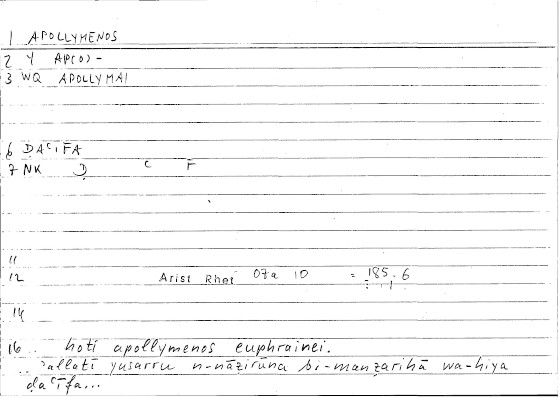 1 APOLLYMENOS
2 Y AP(O)-
3 WQ APOLLYMAI
6 ḌAʿIFA
7 NK Ḍ ʿ F
11
12 Arist Rhet 07a 10 = 185.6
14
16 .. hoti apollymenos euphrainei.
.. ʾallatī yusarru n-nāẓirūna bi-manẓarihā wa-hiya
ḍaʿīfa...